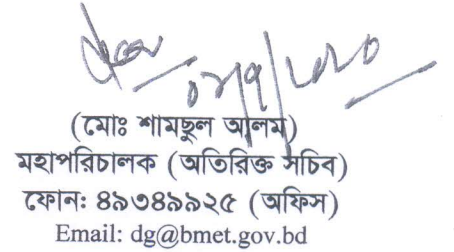 (মোঃ শামছুল আলম)
মহাপরিচালক (অতিরিক্ত সচিব)
ফোন: ৪৯৩৪৯৯২৫ (অফিস)
Email: dg@bmet.gov.bd